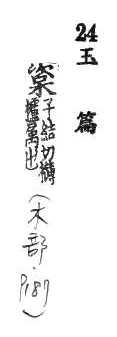 24 玉篇
子結切欂
櫨
(木部·P187)